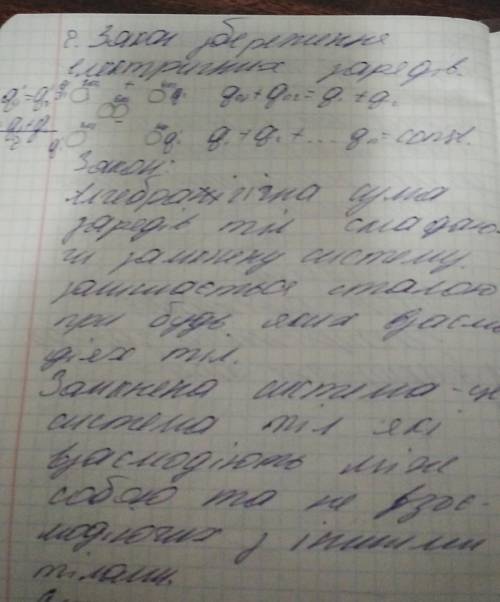 2. Закон збереження
електричних зарядів.
q₀₁ + q₀₂ = q₁ + q₂
q₁ + q₂ + ... qₙ = const.
Закон:
Алгебраїгічна сума
зарядів тіл складаю
чи замкнену систему.
залишається сталою
при будь яких взаємо
діях тіл.
Замкнена система - це
система тіл які
взаємодіють між
собою та не взає-
модіючих з іншими
тілами.